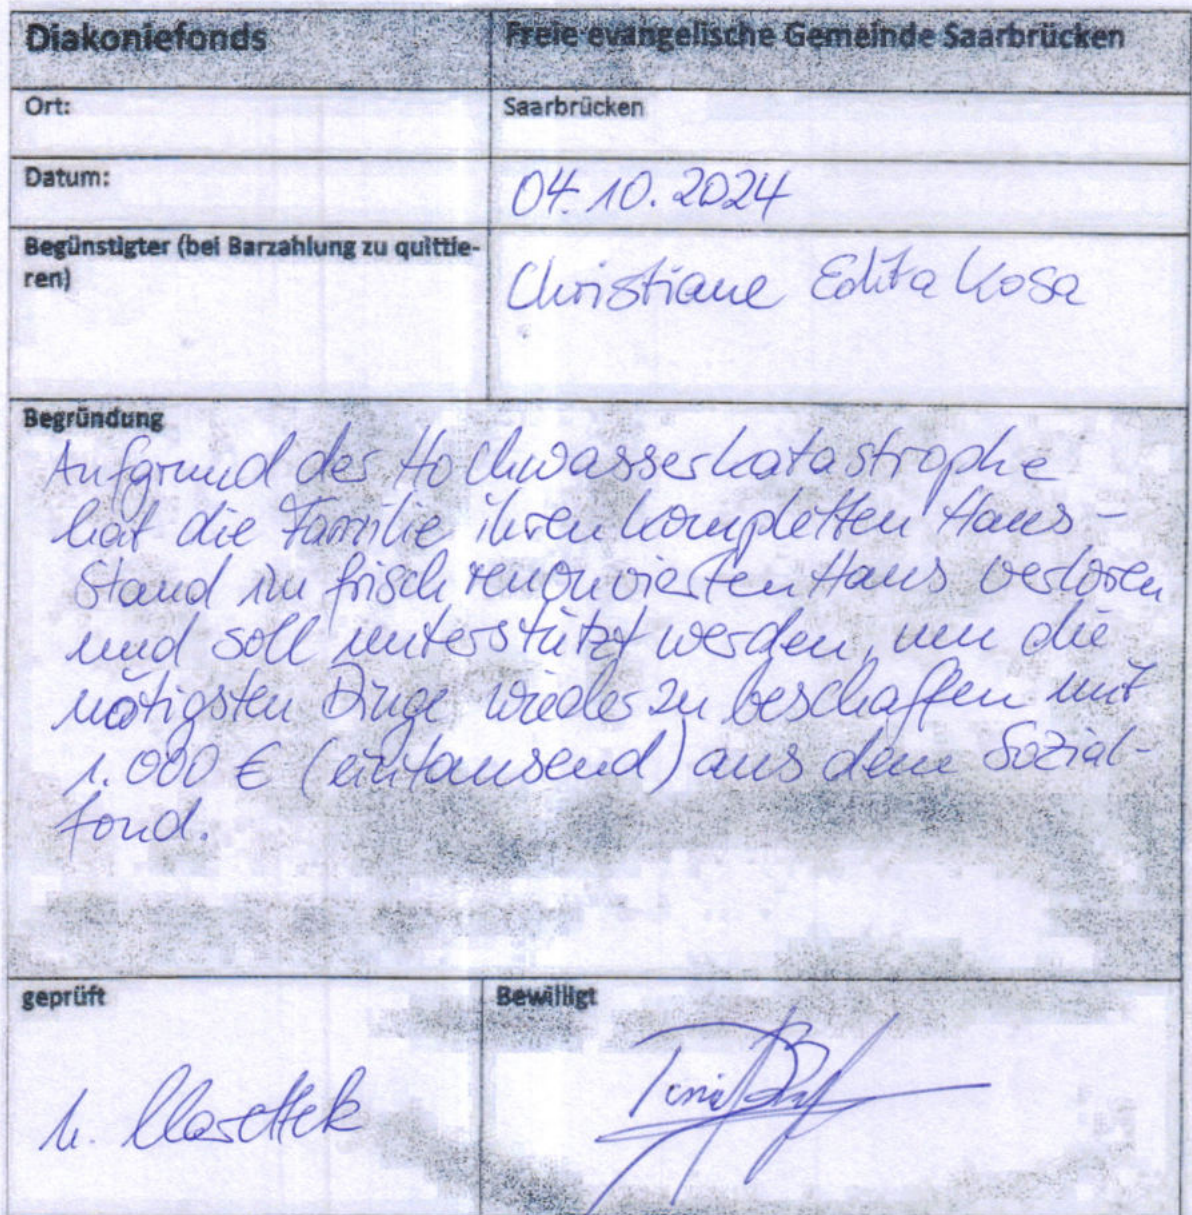 Diakoniefonds Freie evangelische Gemeinde Saarbrücken
Ort: Saarbrücken
Datum: 04.10.2024
Begünstigter (bei Barzahlung zu quittie-
ren) Christiane Edita Kosa
Begründung
Aufgrund der Hochwasserkatastrophe
hat die Familie ihren kompletten Haus-
stand im frisch renovierten Haus verloren
und soll unterstützt werden, um die
nötigsten Dinge wieder zu beschaffen mit
1.000 € (eintausend) aus dem Sozial-
fond.
geprüft Bewilligt